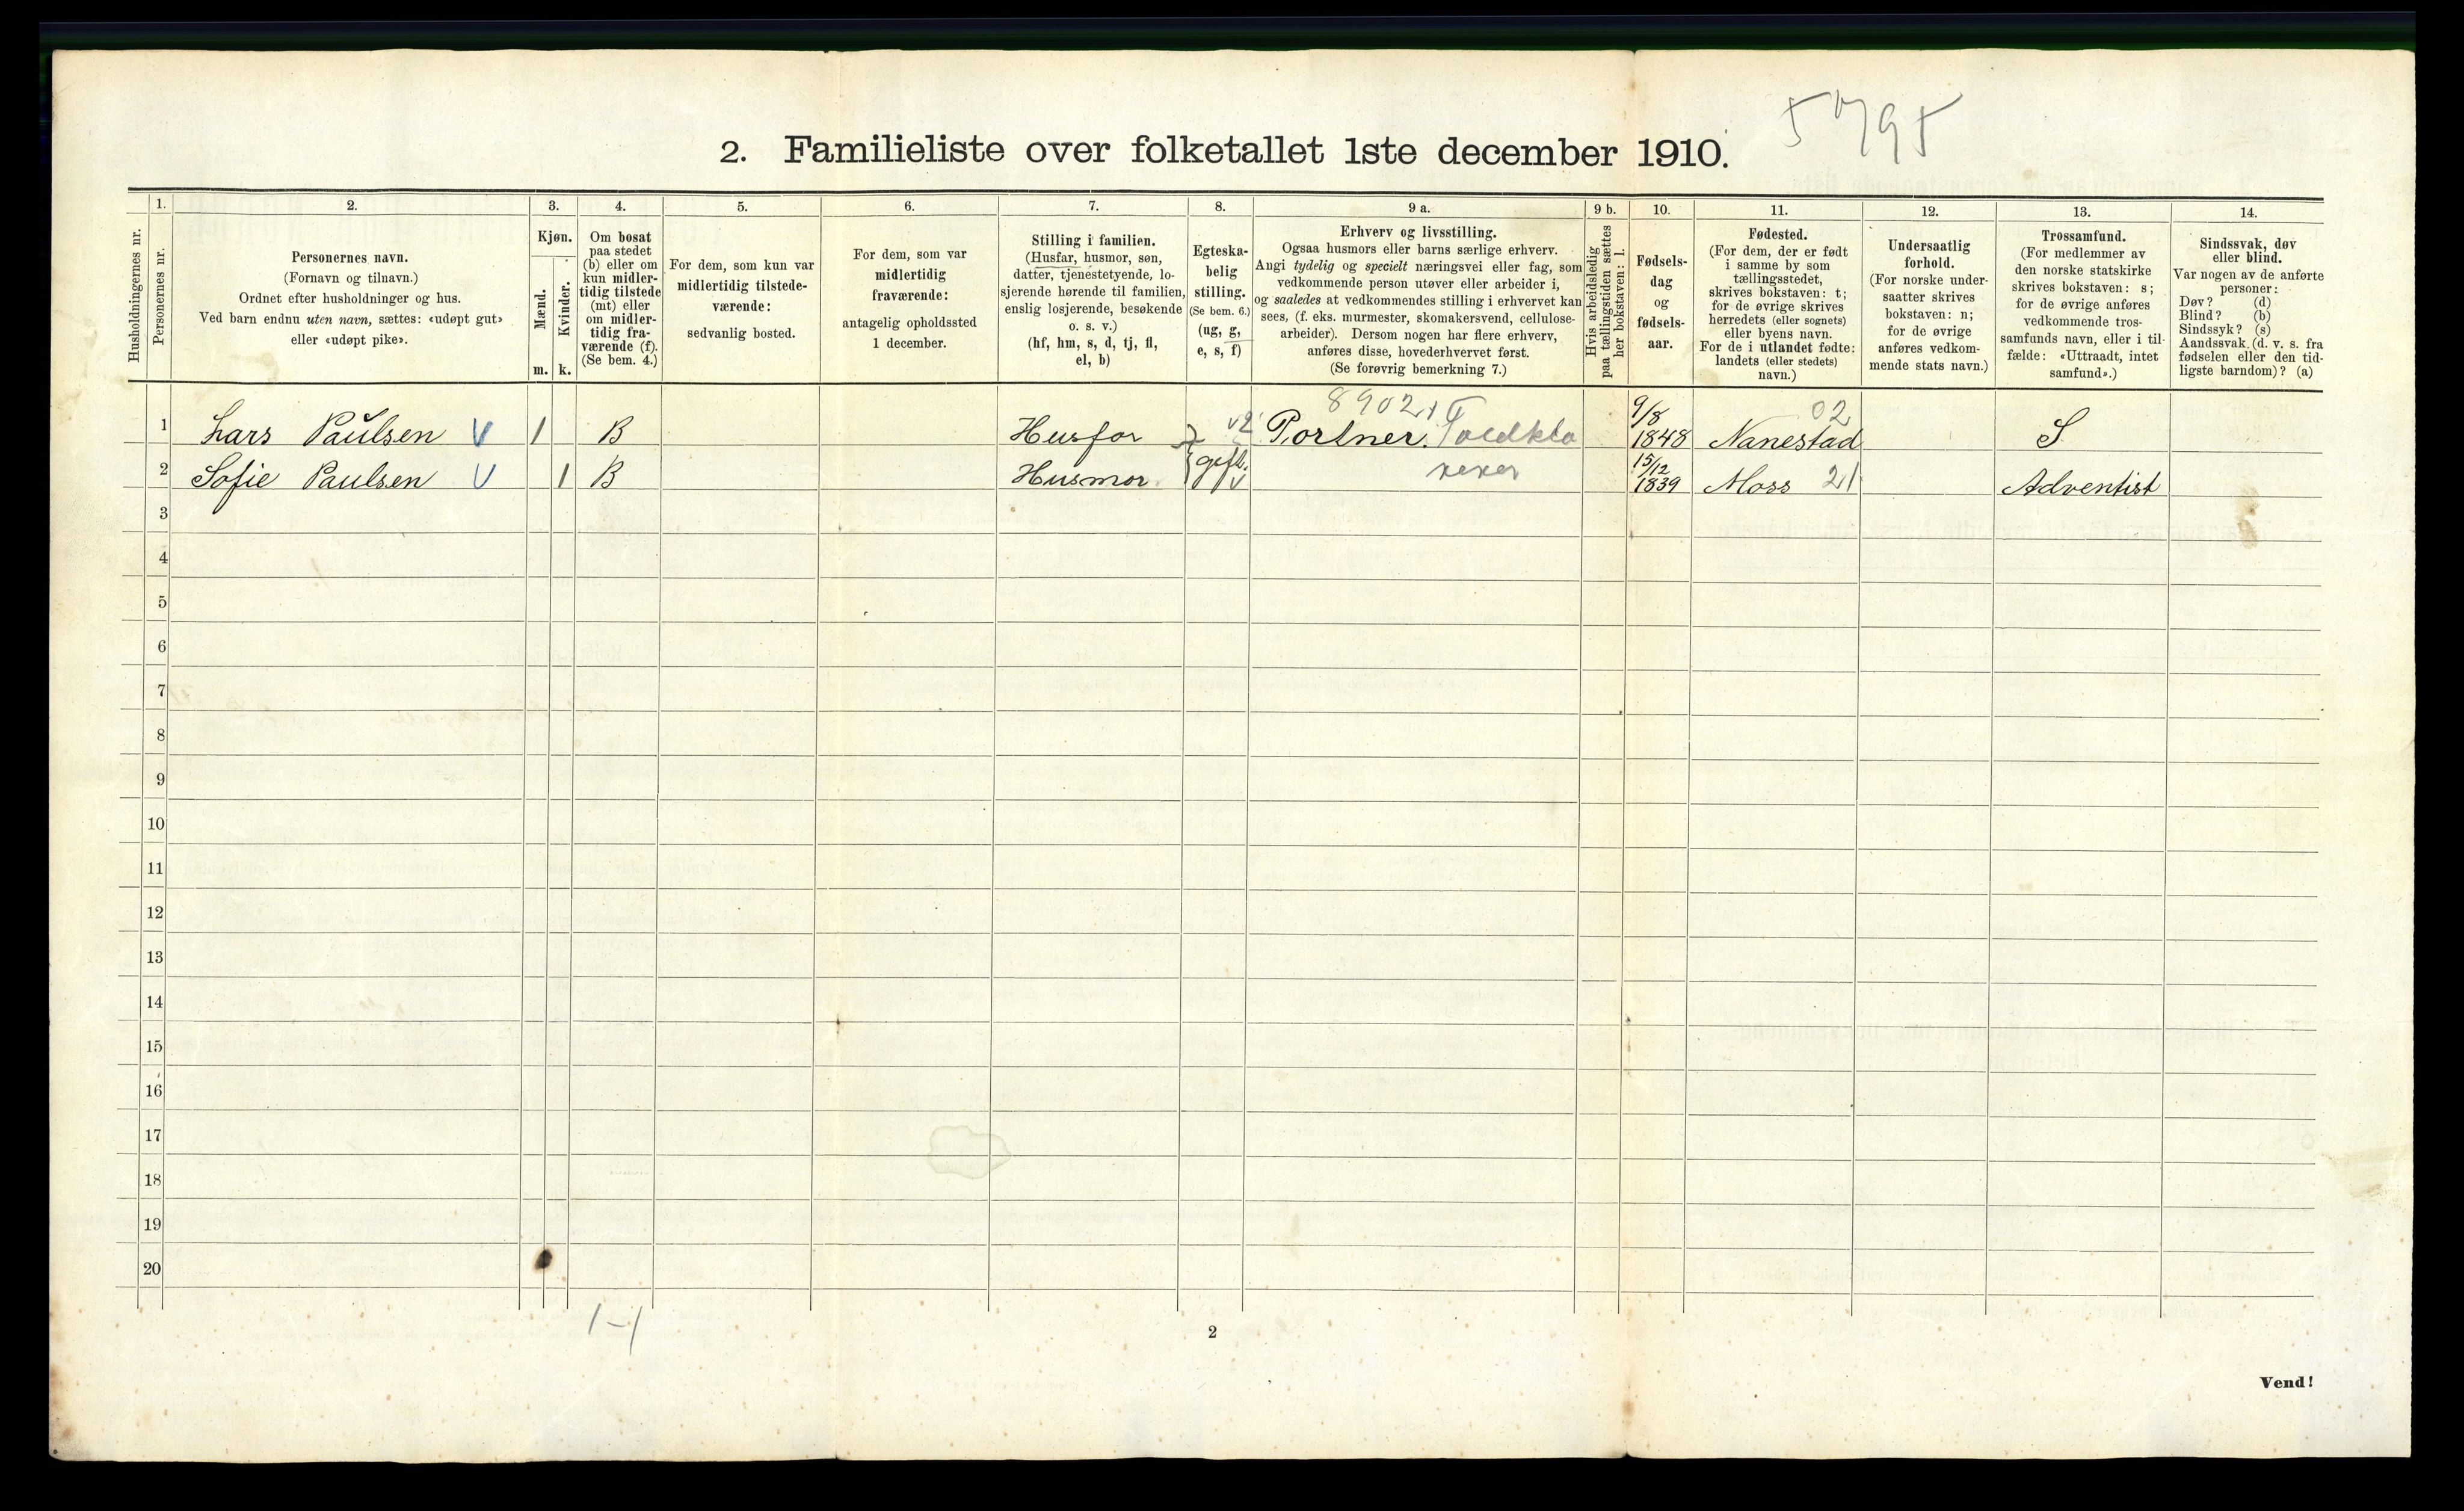 5795
2. Familieliste over folketallet 1ste december 1910.
Husholdningernes nr.
1.
Personernes nr.
2.
Personernes navn.
(Fornavn og tilnavn.)
Ordnet efter husholdninger og hus.
Ved barn endnu uten navn, sættes: «udøpt gut»
eller «udøpt pike».
3.
Kjøn.
Mænd.
Kvinder.
m. k.
4.
Om bosat
paa stedet
(b) eller om
kun midler-
tidig tilstede
(mt) eller
om midler-
tidig fra-
værende (f).
(Se bem. 4.)
5.
For dem, som kun var
midlertidig tilstede-
værende:
sedvanlig bosted.
6.
For dem, som var
midlertidig
fraværende:
antagelig opholdssted
1 december.
7.
Stilling i familien.
(Husfar, husmor, søn,
datter, tjenestetyende, lo-
sjerende hørende til familien,
enslig losjerende, besøkende
o. s. v.)
(hf, hm, s, d, tj, fl,
el, b)
8.
Egteska-
belig
stilling.
(Se bem. 6.)
(ug, g,
e, s, f)
9 a.
Erhverv og livsstilling.
Ogsaa husmors eller barns særlige erhverv.
Angi tydelig og specielt næringsvei eller fag, som
vedkommende person utøver eller arbeider i,
og saaledes at vedkommendes stilling i erhvervet kan
sees, (f. eks. murmester, skomakersvend, cellulose-
arbeider). Dersom nogen har flere erhverv,
anføres disse, hovederhvervet først.
(Se forøvrig bemerkning 7.)
9 b.
Hvis arbeidsledig
paa tællingstiden sættes
her bokstaven: l.
10.
Fødsels-
dag
og
fødsels-
aar.
11.
Fødested.
(For dem, der er født
i samme by som
tællingsstedet,
skrives bokstaven: t;
for de øvrige skrives
herredets (eller sognets)
eller byens navn.
For de i utlandet fødte:
landets (eller stedets)
navn.)
12.
Undersaatlig
forhold.
(For norske under-
saatter skrives
bokstaven: n;
for de øvrige
anføres vedkom-
mende stats navn.)
13.
Trossamfund.
(For medlemmer av
den norske statskirke
skrives bokstaven: s;
for de øvrige anføres
vedkommende tros-
samfunds navn, eller i til-
fælde: «Uttraadt, intet
samfund».)
14.
Sindssvak, døv
eller blind.
Var nogen av de anførte
personer:
Døv? (d)
Blind? (b)
Sindssyk? (s)
Aandssvak (d. v. s. fra
fødselen eller den tid-
ligste barndom)? (a)
8902 9/8 02
1 Lars Paulsen V 1 B Husfar Portner. 1848 Nanestad S
2 Sofie Paulsen V 1 B Husmor gift. 15/12 1839 Moss 21 Adventist
3
4
5
6
7
8
9
10
11
12
13
14
15
16
17
18
19
20
1-1
2
Vend!